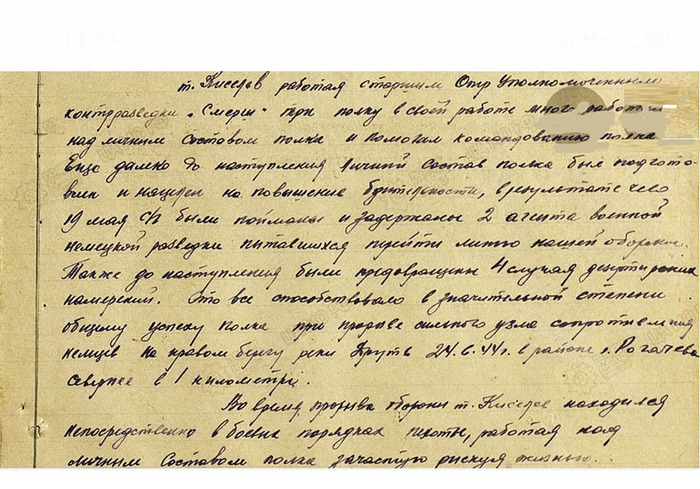 т. Киселев работая старшим Опер Уполномоченным
контрразведки "Смерш" при полку в своей работе много работал
над личным составом полка и помогал командованию полка
Еще далеко до наступления личный состав полка был подгото-
влен и нацелен на повышение бдительности, в результате чего
19 мая с/г были пойманы и задержаны 2 агента военной
немецкой разведки пытавшихся перейти линию нашей обороны.
Также до наступления были предовращены 4 случая дезертирских
намерений. Это все способствовало в значительной степени
общему успеху полка при прорыве сильного узла сопротивления
немцев на правом берегу реки Друть 24.6.44г. в районе г. Рогачева
севернее в 1 километре.
Во время прорыва обороны т. Киселев находился
непосредственно в боевых порядках пехоты, работая над
личным составом полка зачастую рискуя жизнью.